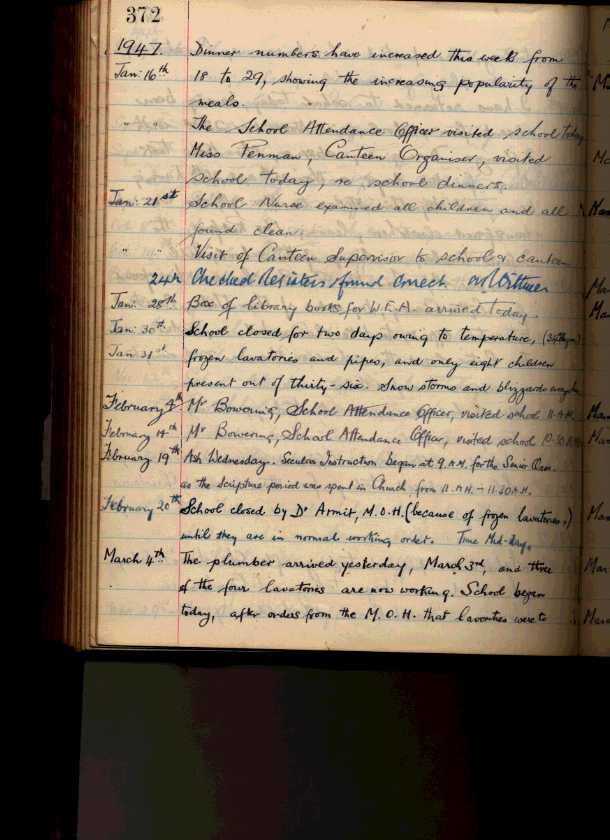 372
1947. Dinner numbers have increased this week from
Jan: 16th 18 to 29, showing the increasing popularity of the
meals.
" " The School Attendance Officer visited school today
Miss Penman, Canteen Organiser, visited
school today, re school dinners.
Jan: 21st School Nurse examined all children and all
found clean.
" " Visit of Canteen Supervisor to school & canteen
24th Checked Registers & found correct
Jan: 28th Box of library books for W.E.A. arrived today
Jan: 30th School closed for two days owing to temperature,
Jan: 31st frozen lavatories and pipes, and only eight children
present out of thirty-six. Snow storms and blizzards
February 4th Mr Bowering, School Attendance Officer, visited school 11 A.M.
February 14th Mr Bowering, School Attendance Officer, visited school 10-30 A.M.
February 19th Ash Wednesday. Secular Instruction began at 9 A.M. for the Senior
as the Scripture period was spent in Church from 11 A.M. - 11.30 A.M.
February 20th School closed by Dr Armit, M.O.H. (because of frozen lavatories,)
until they are in normal working order. Time Mid-day.
March 4th The plumber arrived yesterday, March 3rd, and three
of the four lavatories are now working. School began
today, after orders from the M.O.H. that lavorties were to